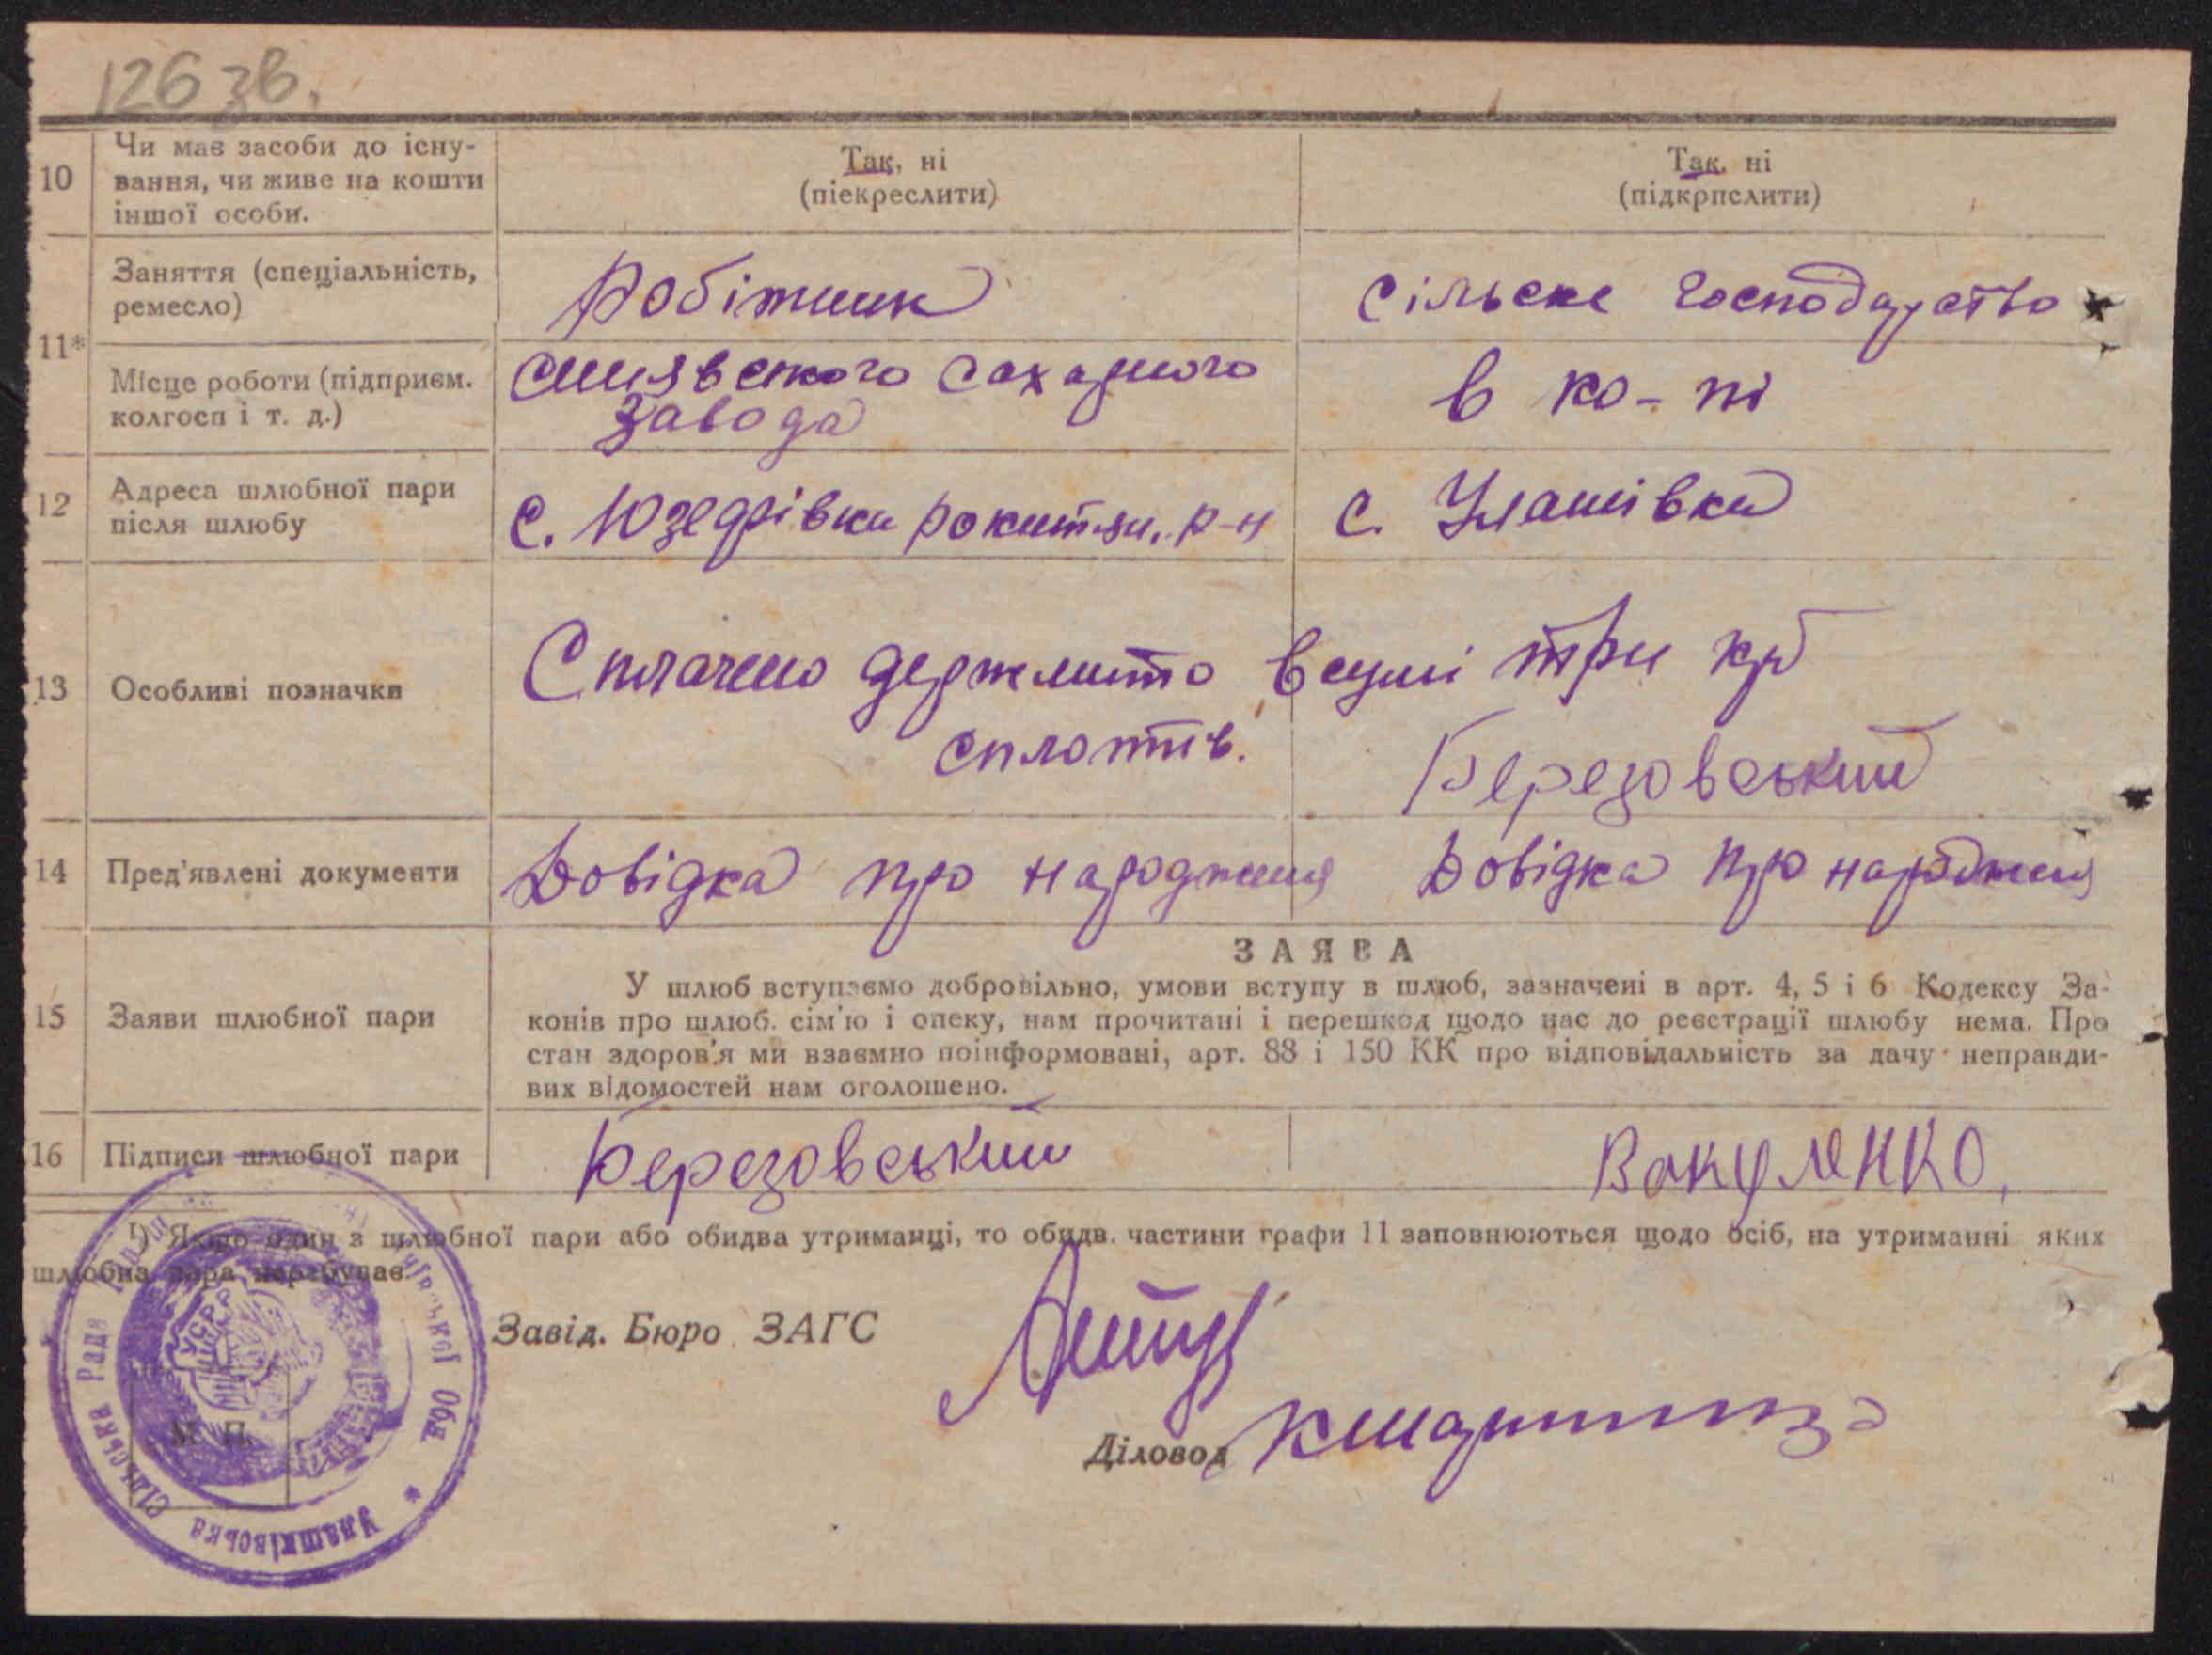 126 зв.
10
Чи має засоби до існу-
вання, чи живе на кошти
іншої особи.
Так, ні
(піекреслити)
Так, ні
(підкрпслити)
11*
Заняття (спеціальність,
ремесло)
Робітник
Сільське господарство
Місце роботи (підприєм.
колгосп і т. д.)
Синявського Сахарного
Завода
в ко-пі
12
Адреса шлюбної пари
після шлюбу
с. Юзефівка Рокитян. р-н
с. Улашівка
13
Особливі позначки
Сплачено держмито в сумі три крб
сплотив.
Березовський
14
Пред'явлені документи
Довідка про народження
Довідка про народження
15
Заяви шлюбної пари
ЗАЯВА
У шлюб вступаємо добровільно, умови вступу в шлюб, зазначені в арт. 4, 5 і 6 Кодексу За-
конів про шлюб. сім'ю і опеку, нам прочитані і перешкод щодо нас до реєстрації шлюбу нема. Про
стан здоров'я ми взаємно поінформовані, арт. 88 і 150 КК про відповідальність за дачу неправди-
вих відомостей нам оголошено.
16
Підписи шлюбної пари
Березовський
Вакуленко,
¹) Якщо один з шлюбної пари або обидва утриманці, то обидв. частини графи 11 заповнюються щодо осіб, на утриманні яких
шлюбна пара перебуває.
Завід. Бюро ЗАГС
Діловод
М. П.
УСРР
Улашківська Сільська Рада
Обл.